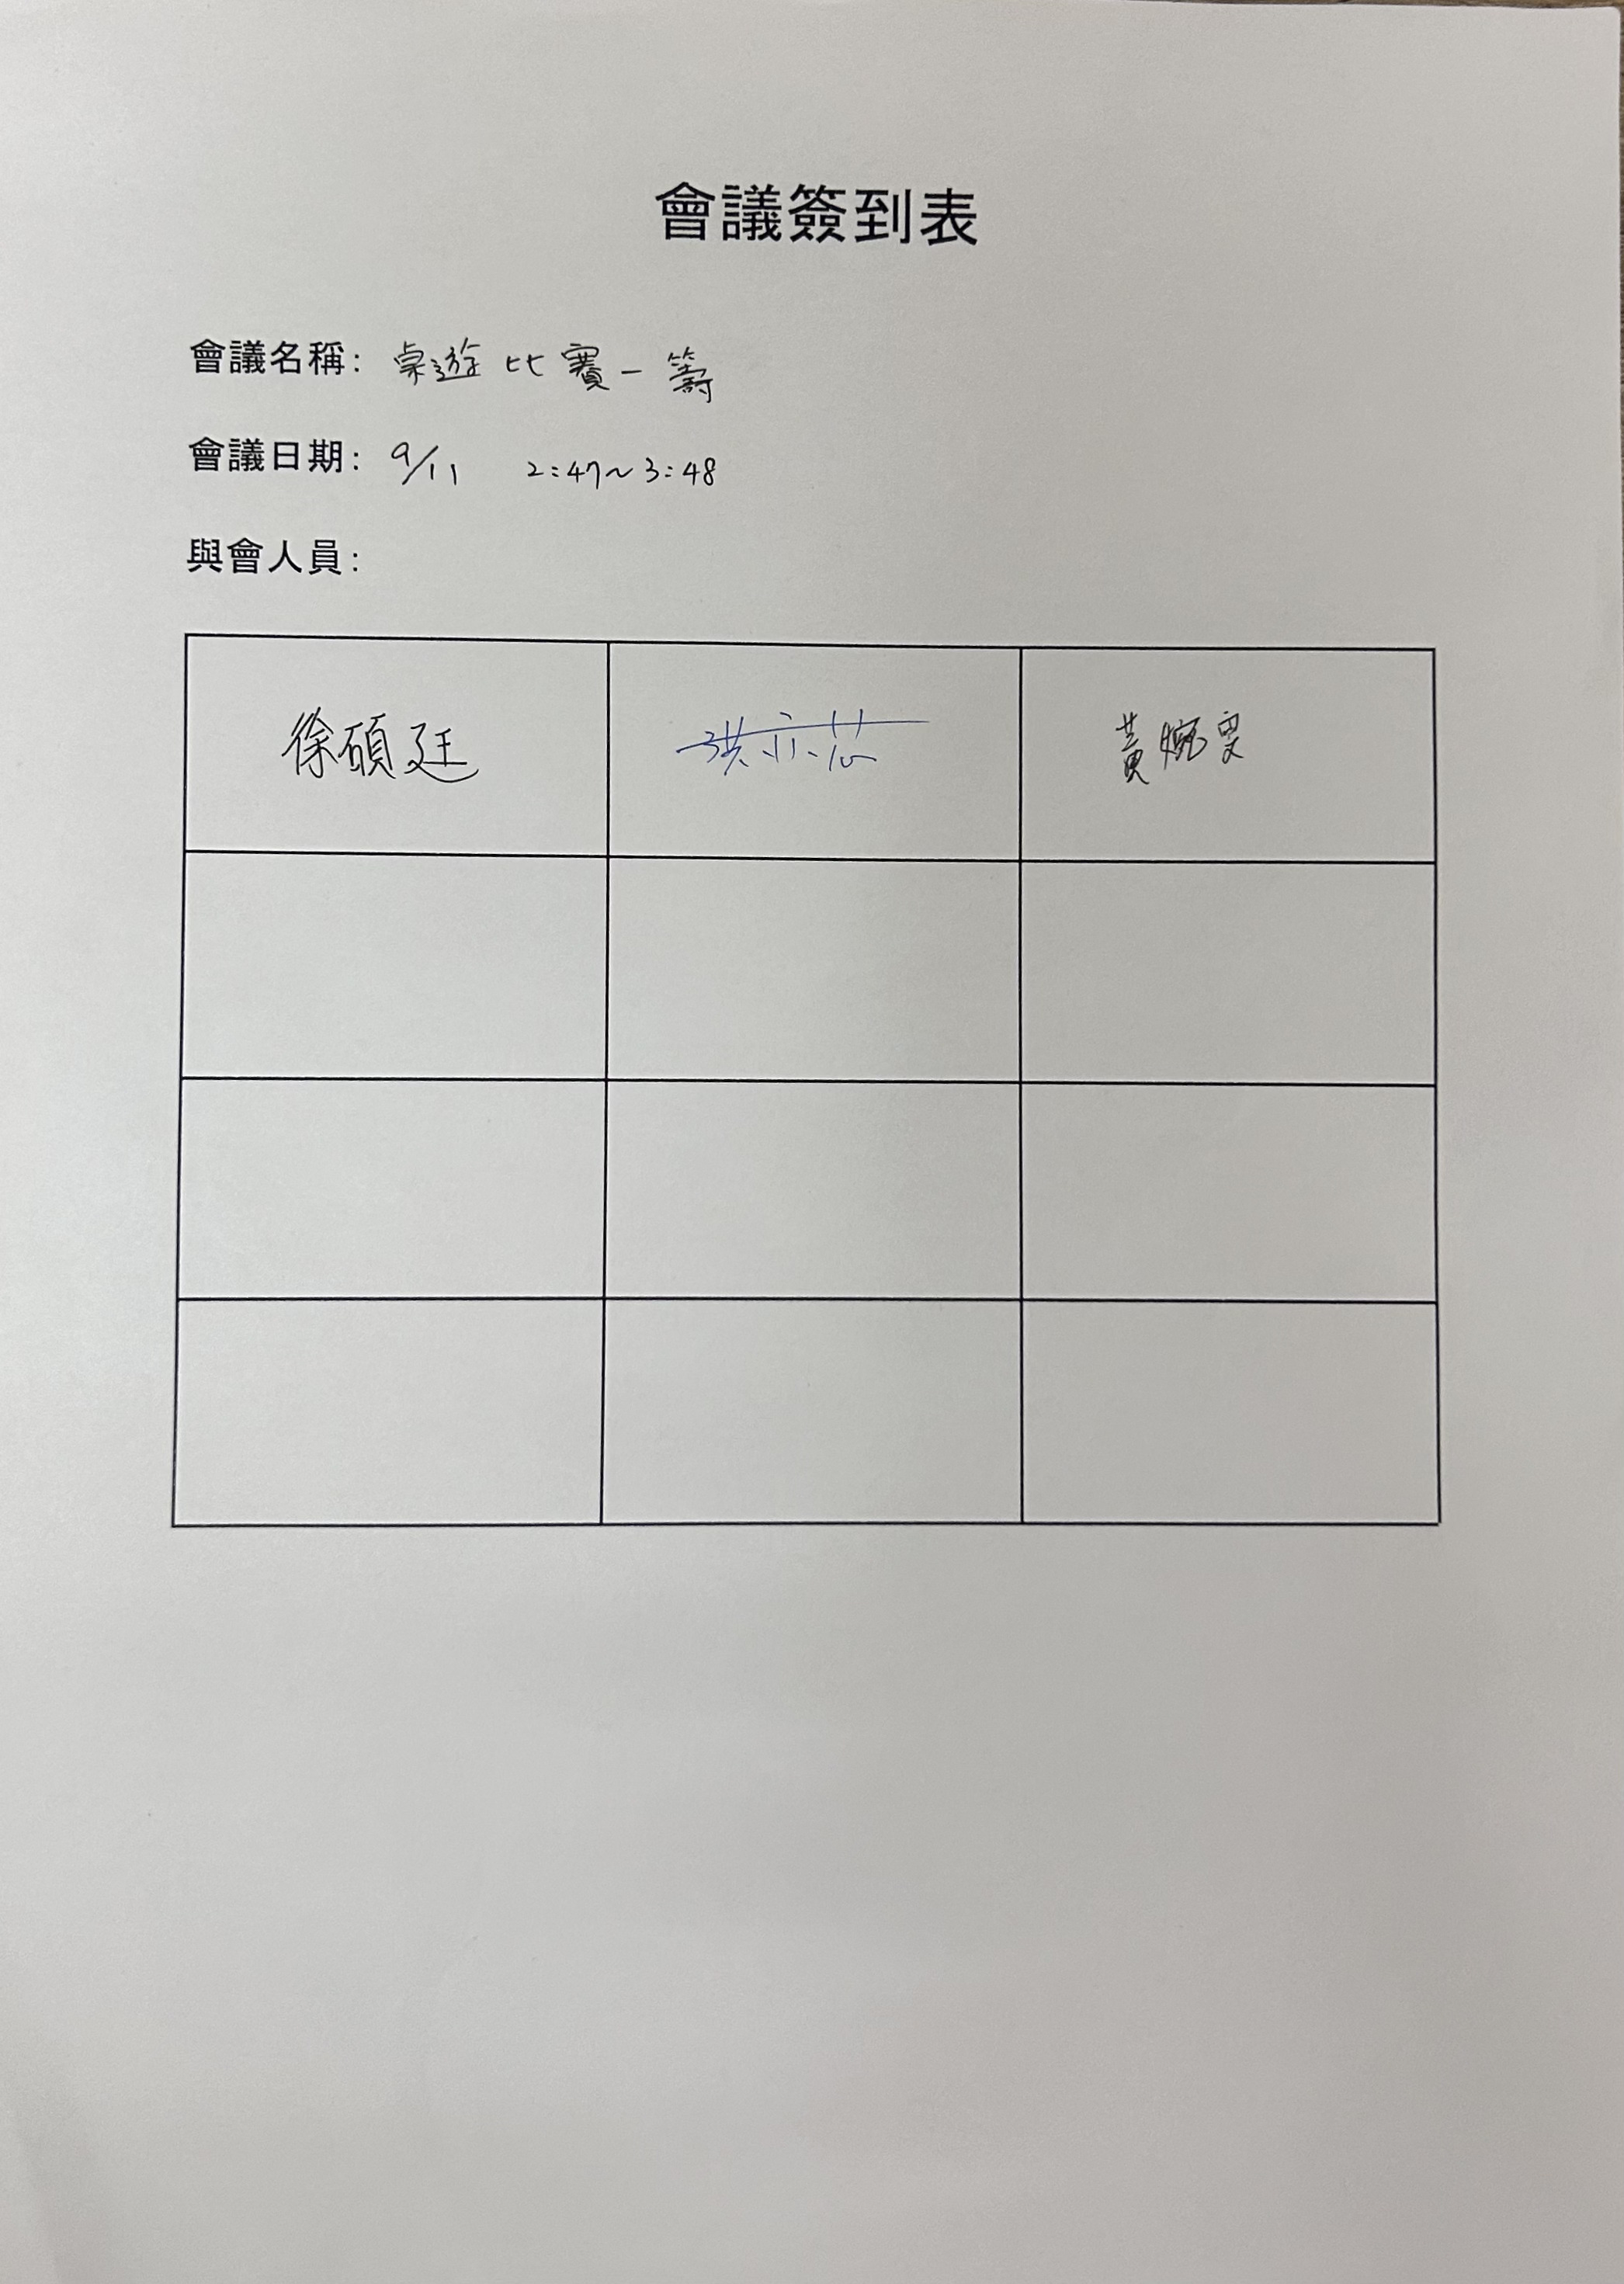 會議簽到表
會議名稱：桌遊比賽一籌
會議日期：9/11 2:47～3:48
與會人員：
徐碩廷 洪亦芯 黃婉雯